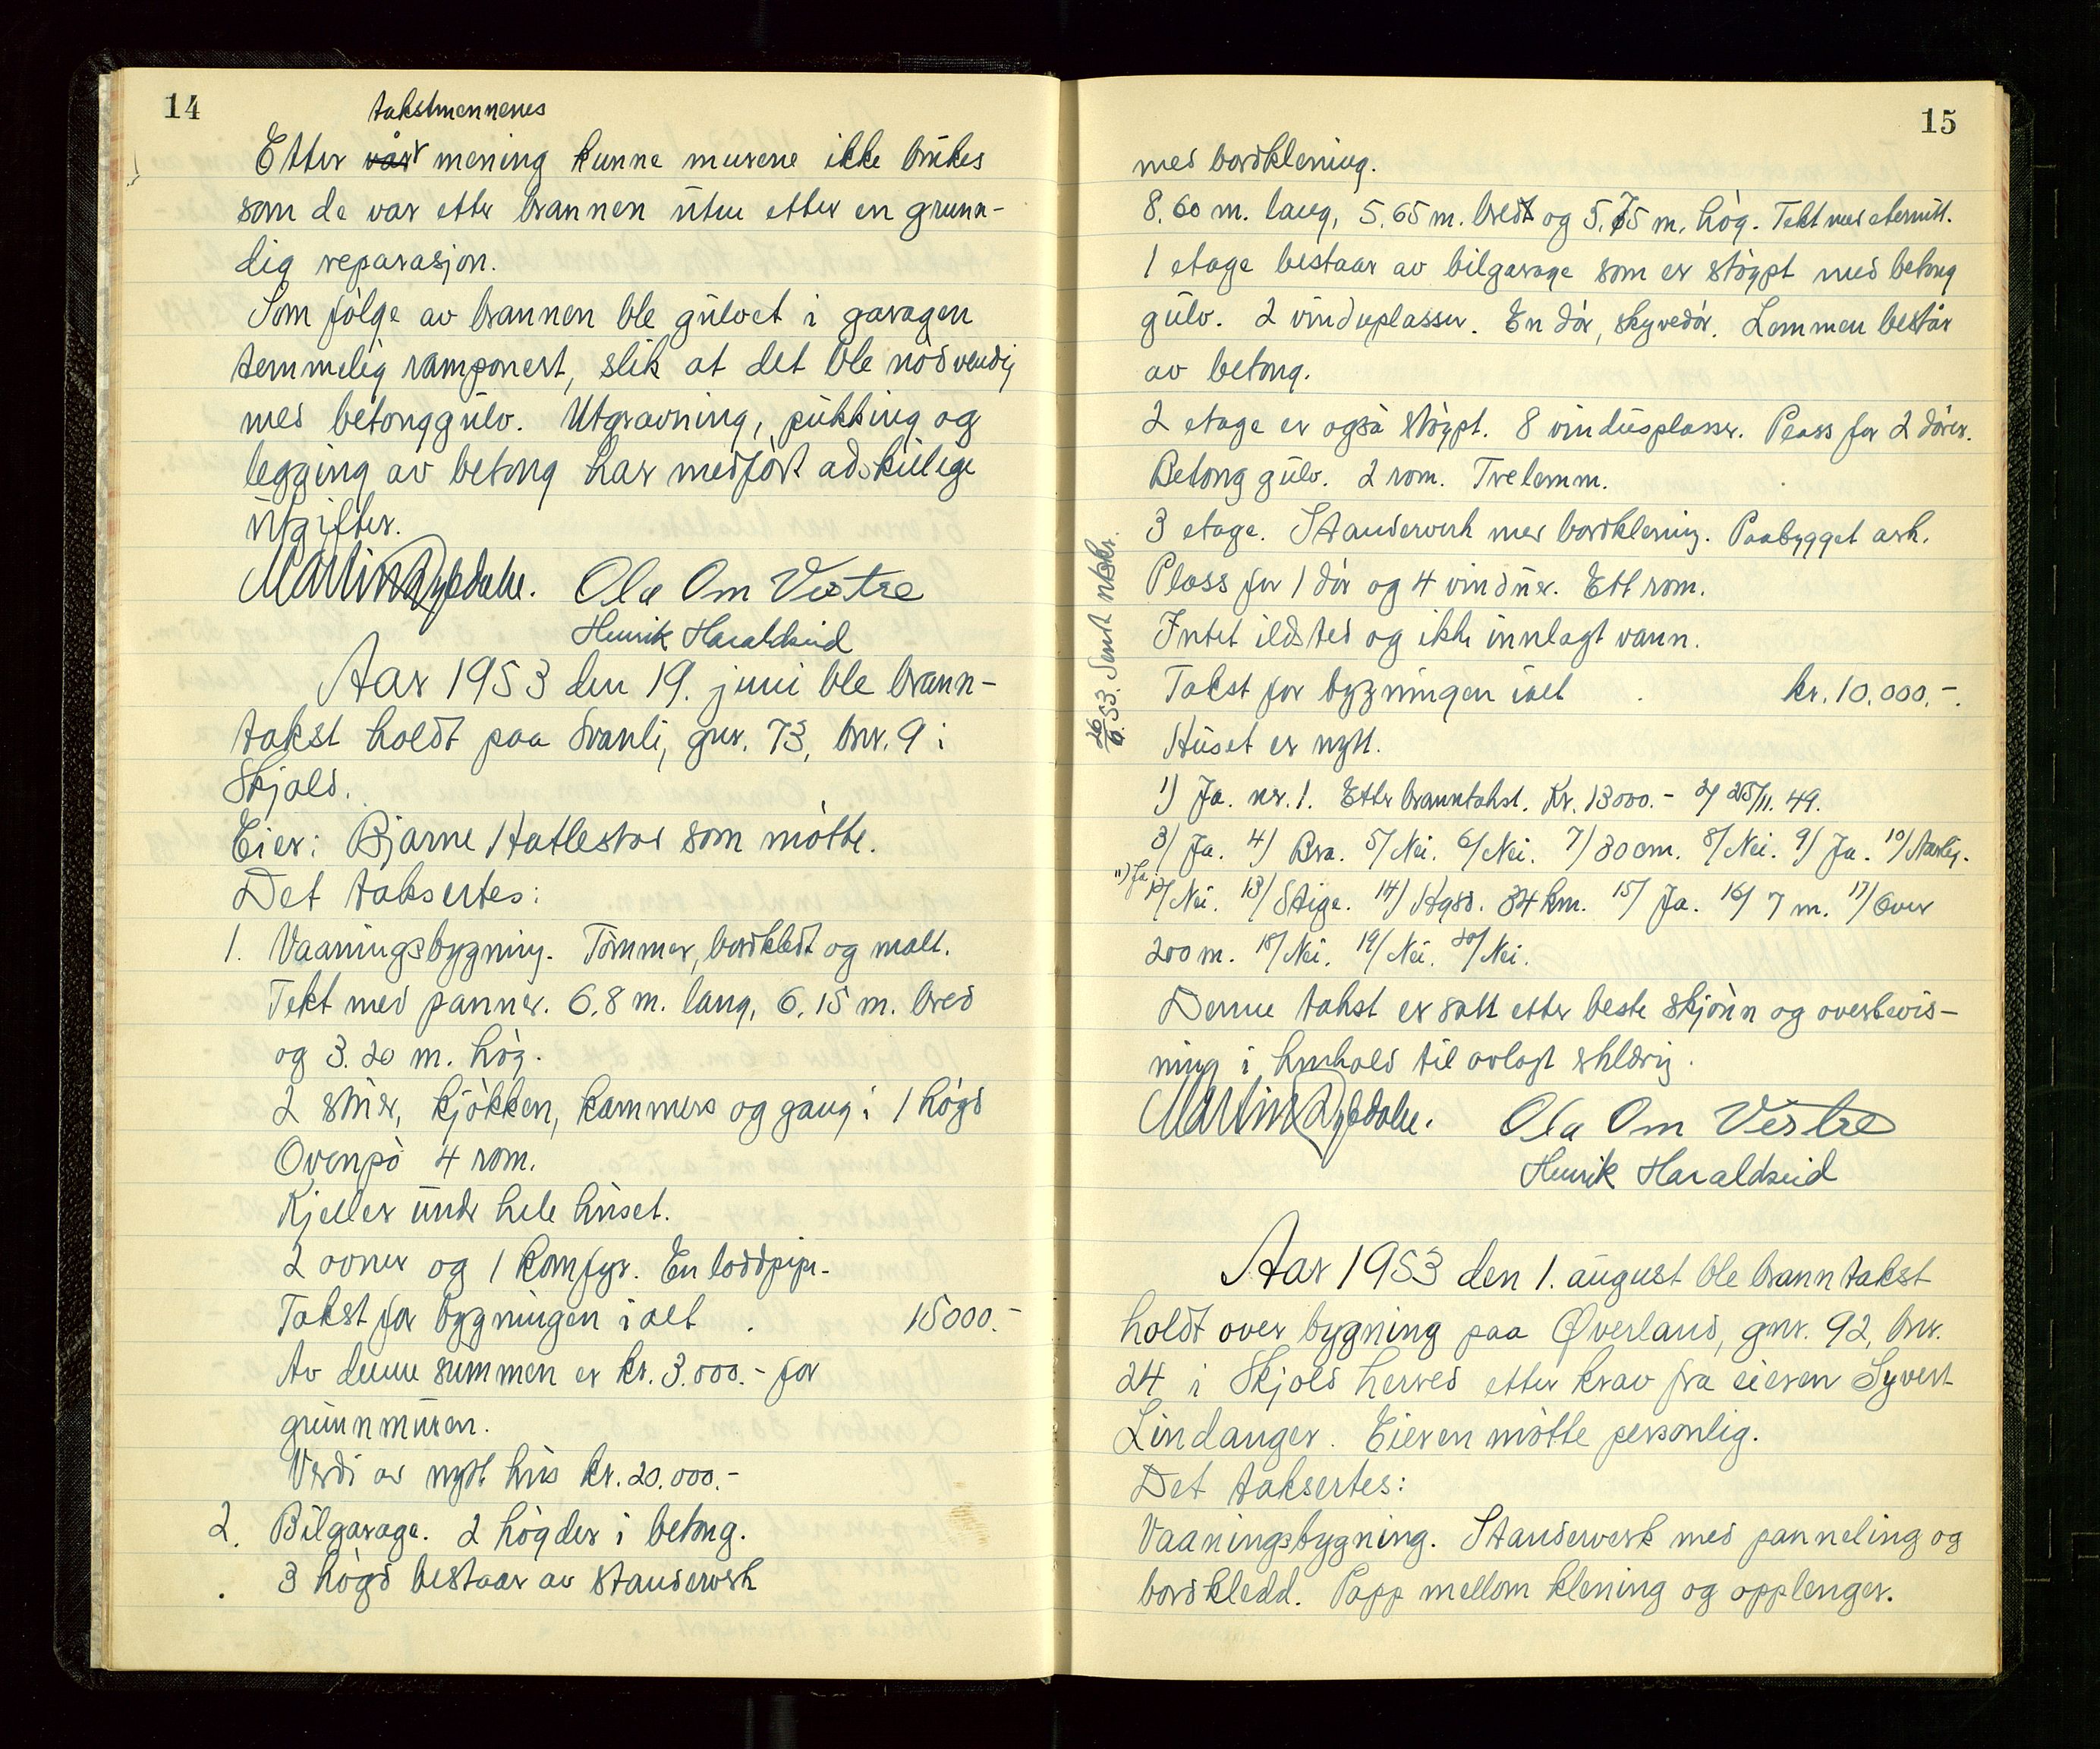 14
takstmennenes
Etter vår mening kunne murene ikke brukes
som de var etter brannen uten etter en grunn-
dig reparasjon.
Som følge av brannen ble gulvet i garagen
temmelig ramponert, slik at det ble nødvendig
med betonggulv. Utgravning, pukking og
legging av betong har medført adskillige
utgifter.
Martin Dybdahl. Ola Om Vestre
Henrik Haraldseid
Aar 1953 den 19. juni ble brann-
takst holdt paa Svanli, gnr. 73, bnr. 9 i
Skjold.
Eier: Bjarne Hatlestad som møtte.
Det taksertes:
1. Vaaningsbygning. Tømmer, bordkledt og malt.
Tekt med panner. 6.8 m. lang, 6.15 m. bred
og 3.20 m. høg.
2 stuer, kjøkken, kammers og gang i 1 høgd
Ovenpå 4 rom.
Kjeller under hele huset.
2 ovner og 1 komfyr. En loddpipe.
Takst for bygningen i alt . 15000.-
Av denne summen er kr. 3.000.- for
grunnmuren.
Verdi av nytt hus kr. 20.000.-
2. Bilgarage. 2 høgder i betong.
3 høgd bestaar av standerverk
15
med bordklening.
8.60 m. lang, 5.65 m. bredt og 5.75 m. høg. Tekt med eternitt.
1 etage bestaar av bilgarage som er støypt med betong
gulv. 2 vinduplasser. En dør, skyvedør. Lemmen består
av betong.
2 etage er også støypt. 8 vindusplasser. Plass for 2 dører.
Betong gulv. 2 rom. Trelemm.
3 etage. Standerverk med bordklening. Paabygget ark.
Plass for 1 dør og 4 vinduer. Ett rom.
Intet ildsted og ikke innlagt vann.
Takst for bygningen ialt . kr. 10.000.-
Huset er nytt.
26/6.53. Sendt utskr.
1) Ja. nr. 1. Etter branntakst. Kr. 13000.- 2/ 25/11. 49.
3/ Ja. 4/ Bra. 5/ Nei. 6/ Nei. 7/ 30 cm. 8/ Nei. 9/ Ja. 10/ Aarlig.
11) Ja 12/ Nei. 13/ Stige. 14/ Hgsd. 34 km. 15/ Ja. 16/ 7 m. 17/ Over
200 m. 18/ Nei. 19/ Nei. 20/ Nei.
Denne takst er satt etter beste skjønn og overbevis-
ning i henhold til avlagt erklæring.
Martin Dybdahl. Ola Om Vestre
Henrik Haraldseid
Aar 1953 den 1. august ble branntakst
holdt over bygning paa Øverland, gnr. 92, bnr.
24 i Skjold herred etter krav fra eieren Syvert
Lindanger. Eieren møtte personlig.
Det taksertes:
Vaaningsbygning. Standerverk med panneling og
bordkledd. Papp mellom klening og opplenger.